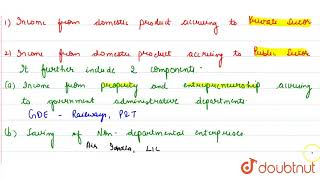 1) Income from domestic product accruing to Private Sector
2) Income from domestic product accruing to Public Sector
It further include 2 components -
(a) Income from property and entrepreneurship accruing
to government administrative departments.
GDE - Railways, P&T
(b) Saving of Non-departmental enterprises
Air India, LIC
doubtnut